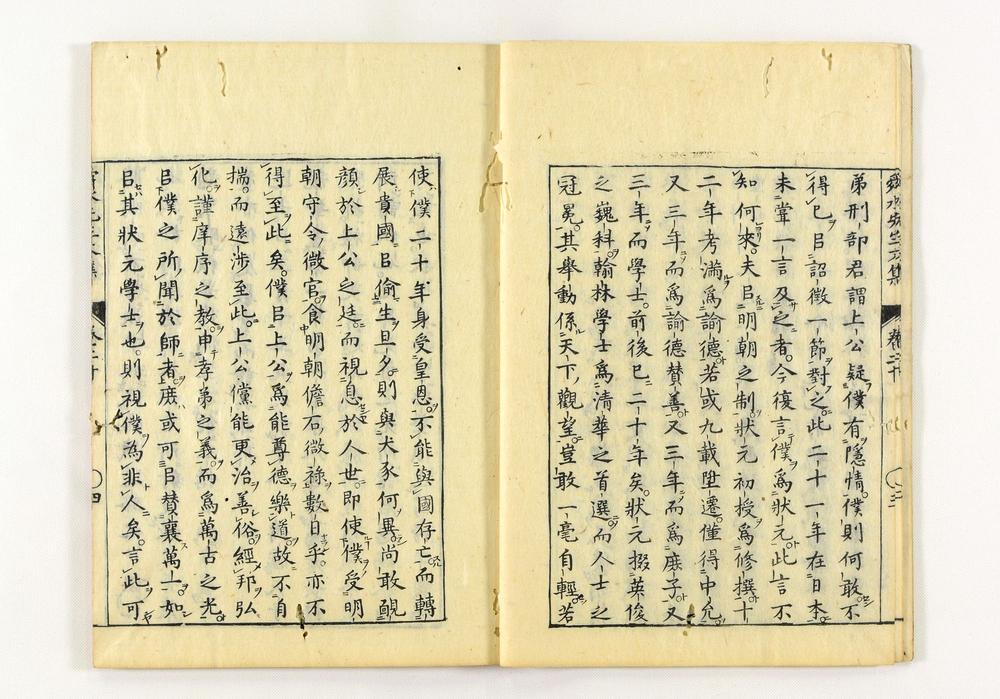 舜水先生文集 卷二十 三
弟刑部君謂上公疑僕有隱情僕則何敢不
得已㠯詔徵一節對之此二十一年在日本
未嘗一言及之者今復言僕爲狀元此言不
知何來夫㠯明朝之制狀元初授爲修撰十
二年考滿爲諭德若或九載陞遷僅得中允
又三年而爲諭德贊善又三年而爲庶子又
三年而學士前後已二十年矣狀元掇英俊
之巍科翰林學士爲清華之首選而人士之
冠冕其舉動係天下觀望豈敢一毫自輕若
使僕二十年身受皇恩不能與國存亡而轉
展貴國㠯偷生旦夕則與犬豕何異尚敢靦
顏於上公之廷而視息於人世即使僕受明
朝守令微官食明朝儋石微祿數日乎亦不
得至此矣僕㠯上公爲能尊德樂道故不自
揣而遠涉至此上公儻能更治善俗經邦弘
化謹庠序之教申孝弟之義而爲萬古之光
㠯僕之所聞於師者庶或可㠯贊襄萬一如
㠯其狀元學士也則視僕為非人矣言此可
四